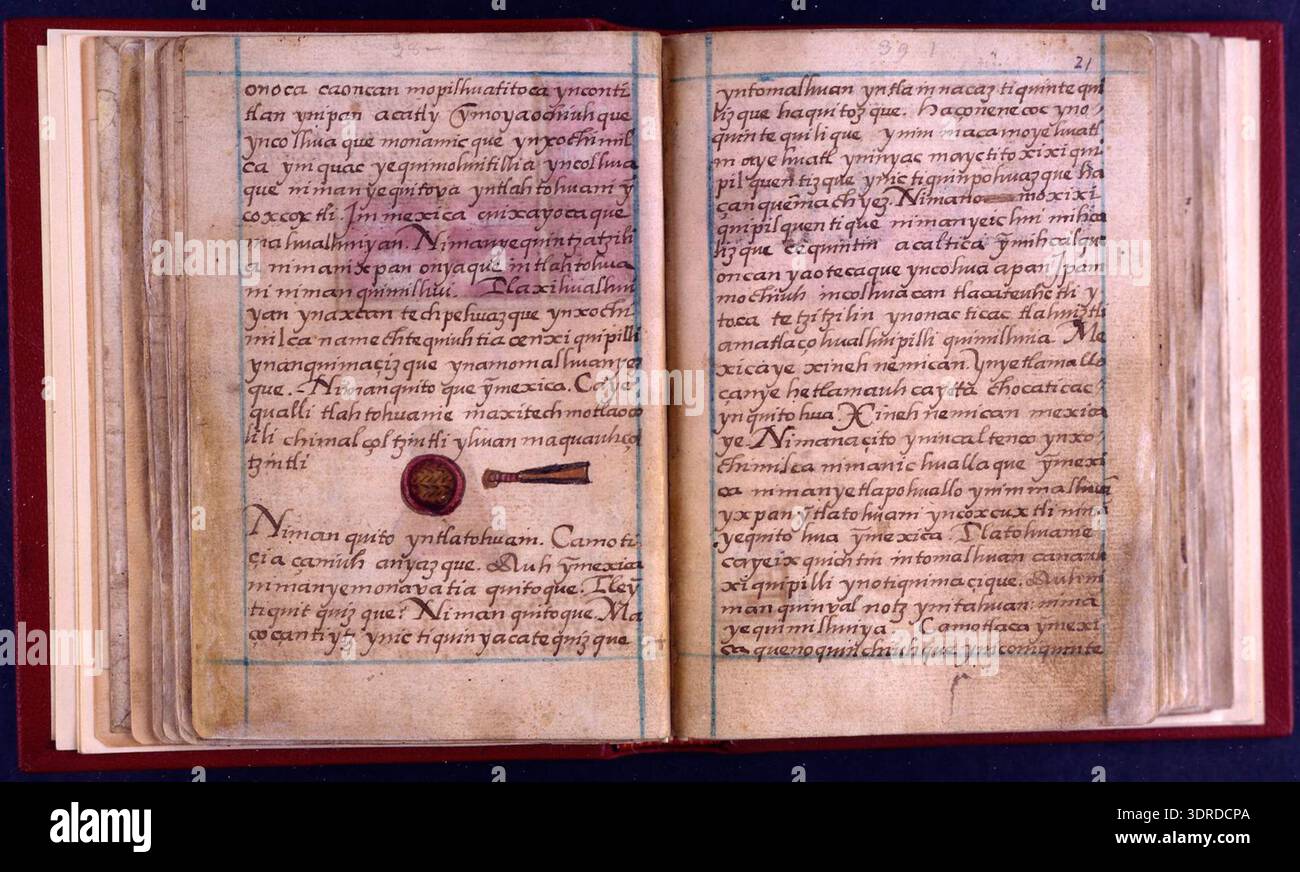 38
onoca caoncan mopilhuatitoca ynconti
tlan ynipan acatly ȳmoyaochiuhque
yncolhua que monamic que ynxochimil
ca yn iquac yequimolnitillia yncolhua
que niman yequitova yntlahtohuani ȳ
coxcoxtli. Inmexica cuixayocaque
ma hualhuiyan. Nimanyequintzatzili
a nimanixpan onyaque intlahtohua
ni niman quimilhui. Tlaxihualhui
yan ynaxcan techpehuazque ynxochi
milca namechtequiuhtia cenxiquipilli
ynanquimaçizque ynanomalhuanyez
que. Nimanquito que ȳmexica. Caye
qualli tlahtohuanie maxitechmotlaoco
lili chimalçoltzintli yhuan maquauhço
tzintli
Niman quito yntlatohuani. Camoti
çia çaniuh anyazque. Auh ȳmexica
nimanyemonavatia quitoque. Tleȳ
tiquitquizque? Niman quitoque. Ma
çocantiytz ynictiquinyacatequizque
39 1
21
yntomalhuan yntlamnacaztiquintequi
lizque haquitozque. Haçoneneçoc yno
quintequilique ynin macamoyehuatl
mayehuatl yninyac mayctitoxixiqui
pilquentizque ynictiquinpohuazque ha
çanquēmachyez. Nimano moxixi
quipilquentique nimanyeichui mihca
lizque cequintin acaltica ȳmihcalque
oncanyaotecaque yncolhuaapan Ipam
mochiuh incolhuacan tlacateuhctli y
toca tetzitzilin ynonacticac tlahuiztli
amatlaçohualhuipilli quimilhuia. Me
xicaye xinehnemican. Ynyetlamallo
çanye hetlamauh caytta chocaticac
ynquitohua. Xinehnemican mexica
ye. Nimanaçito ynincaltenco ynxo
chimilca nimanic huallaque ȳmexi
ca nimanyetlapohuallo ynimmalhuā
yxpan ȳtlatohuani yncoxcuxtli nin
yequito hua ȳmexica. Tlatohuanie
cayeixquichtin intomalhuan canauh
xiquipilli ynotiquimaçique. Auh ni
man quinval notz ynitahuan: nima
yequimilhuiya. Camotlaca ymexi
ca quenoquinchiuhque yniconquinte
alamy
Image ID: 3DRDCPA
www.alamy.com